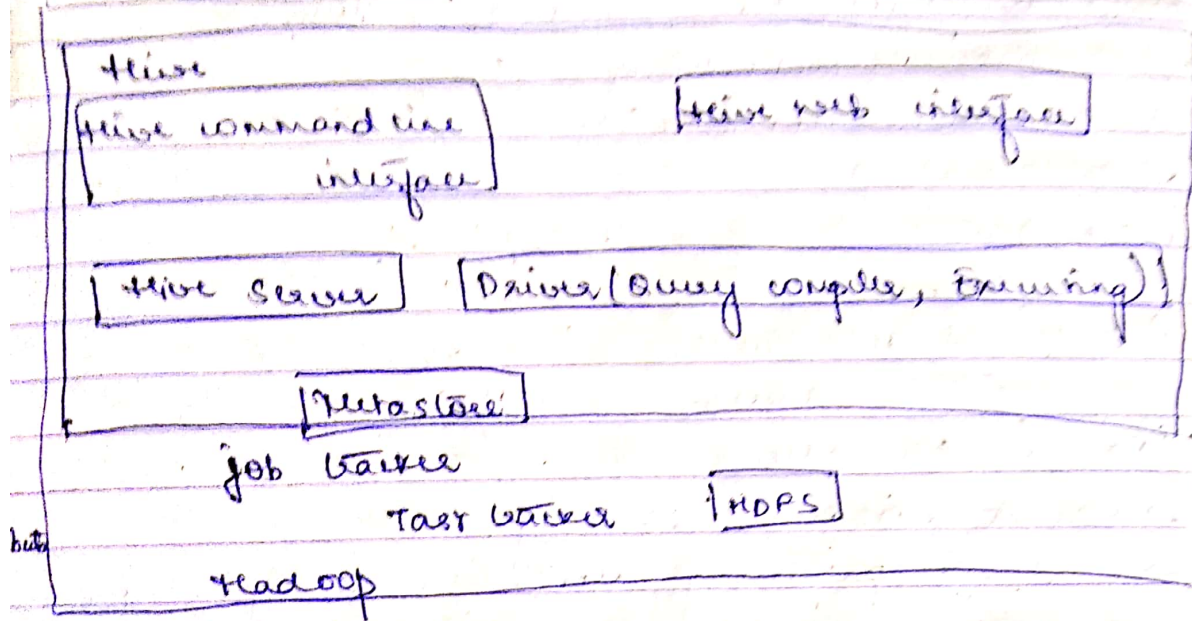 Hive
Hive command line
interface
Hive web interface
Hive Server
Driver (Query compiler, Executing)
Metastore
job tracker
Task tracker
HDFS
Hadoop